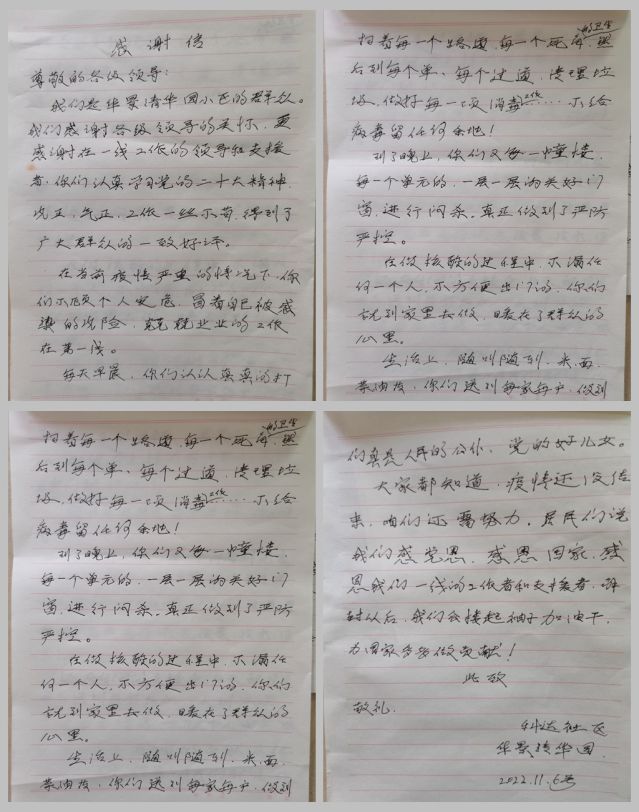 感谢信
尊敬的各级领导：
我们是华景清华园小区的群众。
我们感谢各级领导的关怀，更
感谢在一线工作的领导和支援
者，你们认真学习党的二十大精神，
风正，气正，工作一丝不苟，得到了
广大群众的一致好评。
在当前疫情严重的情况下，你
们不顾个人安危，冒着自己被感
染的风险，兢兢业业的工作
在第一线。
每天早晨，你们认认真真的打
的卫生
扫着每一个路道，每一个死角，然
后到每个单、每个过道，清理垃
圾，做好每一项消毒工作……不给
病毒留任何余地！
到了晚上，你们又每一幢楼，
每一个单元的，一层一层的关好门
窗，进行闷杀。真正做到了严防
严控。
在做核酸的过程中，不漏任
何一个人，不方便出门的，你们
就到家里去做，暖在了群众的
心里。
生活上，随叫随到，米、面、
菜油盐，你们送到每家每户，做到
的卫生
扫着每一个路道，每一个死角，然
后到每个单、每个过道，清理垃
圾，做好每一项消毒工作……不给
病毒留任何余地！
到了晚上，你们又每一幢楼，
每一个单元的，一层一层的关好门
窗，进行闷杀。真正做到了严防
严控。
在做核酸的过程中，不漏任
何一个人，不方便出门的，你们
就到家里去做，暖在了群众的
心里。
生活上，随叫随到，米、面、
菜油盐，你们送到每家每户，做到
们真是人民的公仆、党的好儿女。
大家都知道，疫情还没结
束，咱们还需努力，居民们说
我们感党恩，感恩国家，感
恩我们一线的工作者和支援者，解
封以后，我们会撸起袖子加油干，
为国家多多做贡献！
此致
敬礼.
科达社区
华景清华园.
2022.11.6号